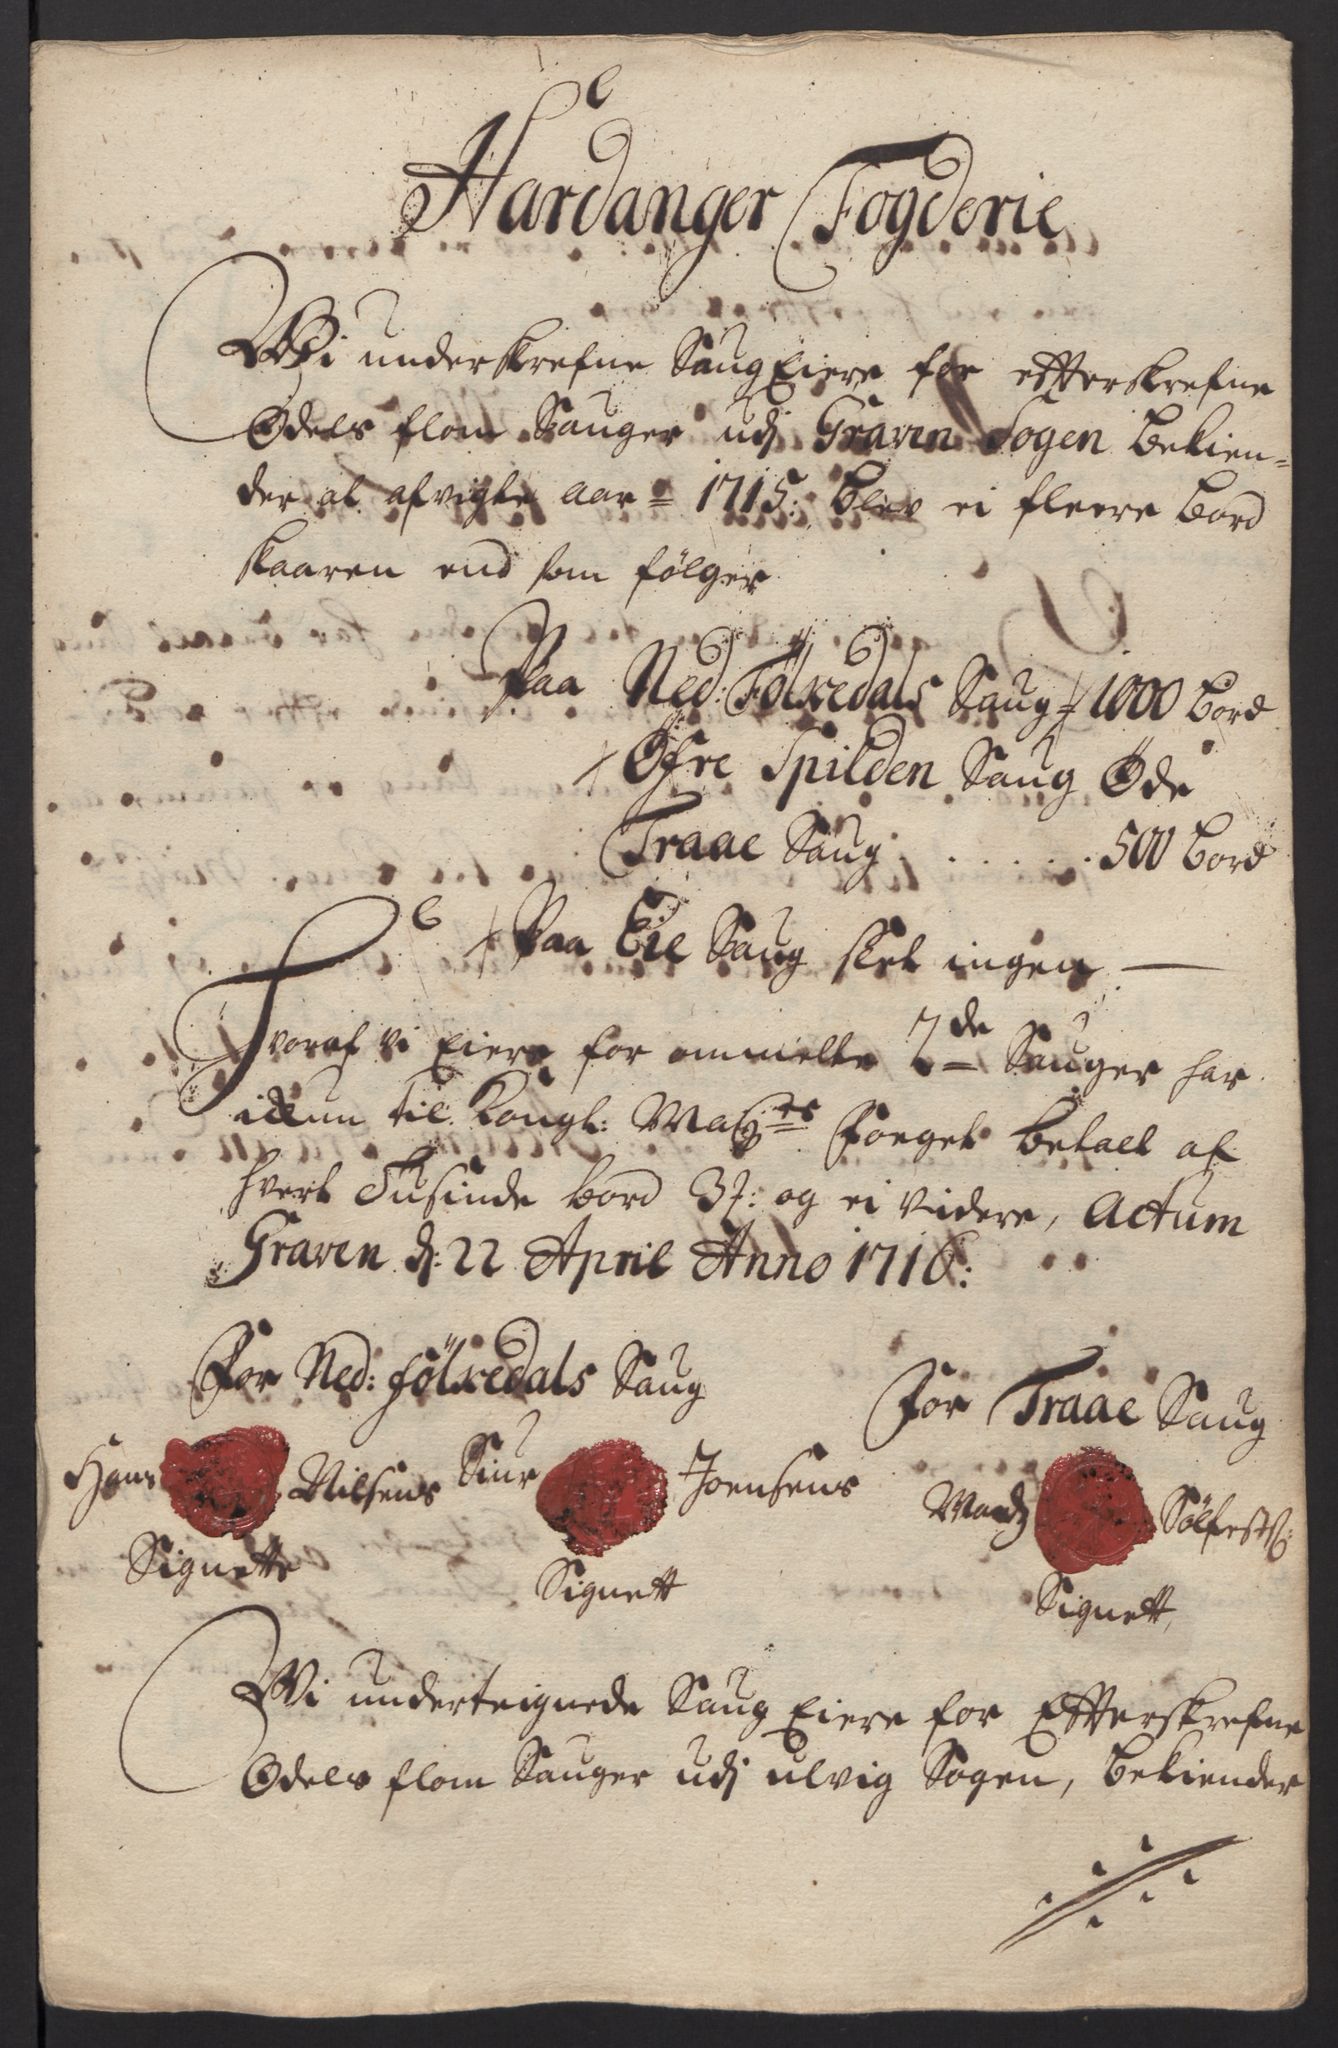 Hardanger Fogderie
Wi underskrefne Saug Eiere for efterskrefne
Odels flom Sauger udj Graven Sogen bekien=
der at afvigte aar = 1715: blev ei fleere bord
skaaren end som følger
Paa Ned: Fölkedals Saug = 1000 bord
Øfre Spilden Saug Øde
Traae Saug . . . . . . 500 bord
Paa Eie Saug slet ingen —
Hvoraf vi Eiere for ommelte 2de Sauger har
til Kongl: Maÿts Foeget betalt af
hvert Tusinde bord 3 og ei videre, Actum
Graven d: 22 April Anno 1716:
For Ned: fölkedals Saug
For Traae Saug
Hans Nilsens Siur Joensens
Madz Sölfests:
Signette Signett
Signett,
Wi underteignede Saug Eiere for Efterskrefne
Odels flom Sauger udj ulvig Sogen, bekiender